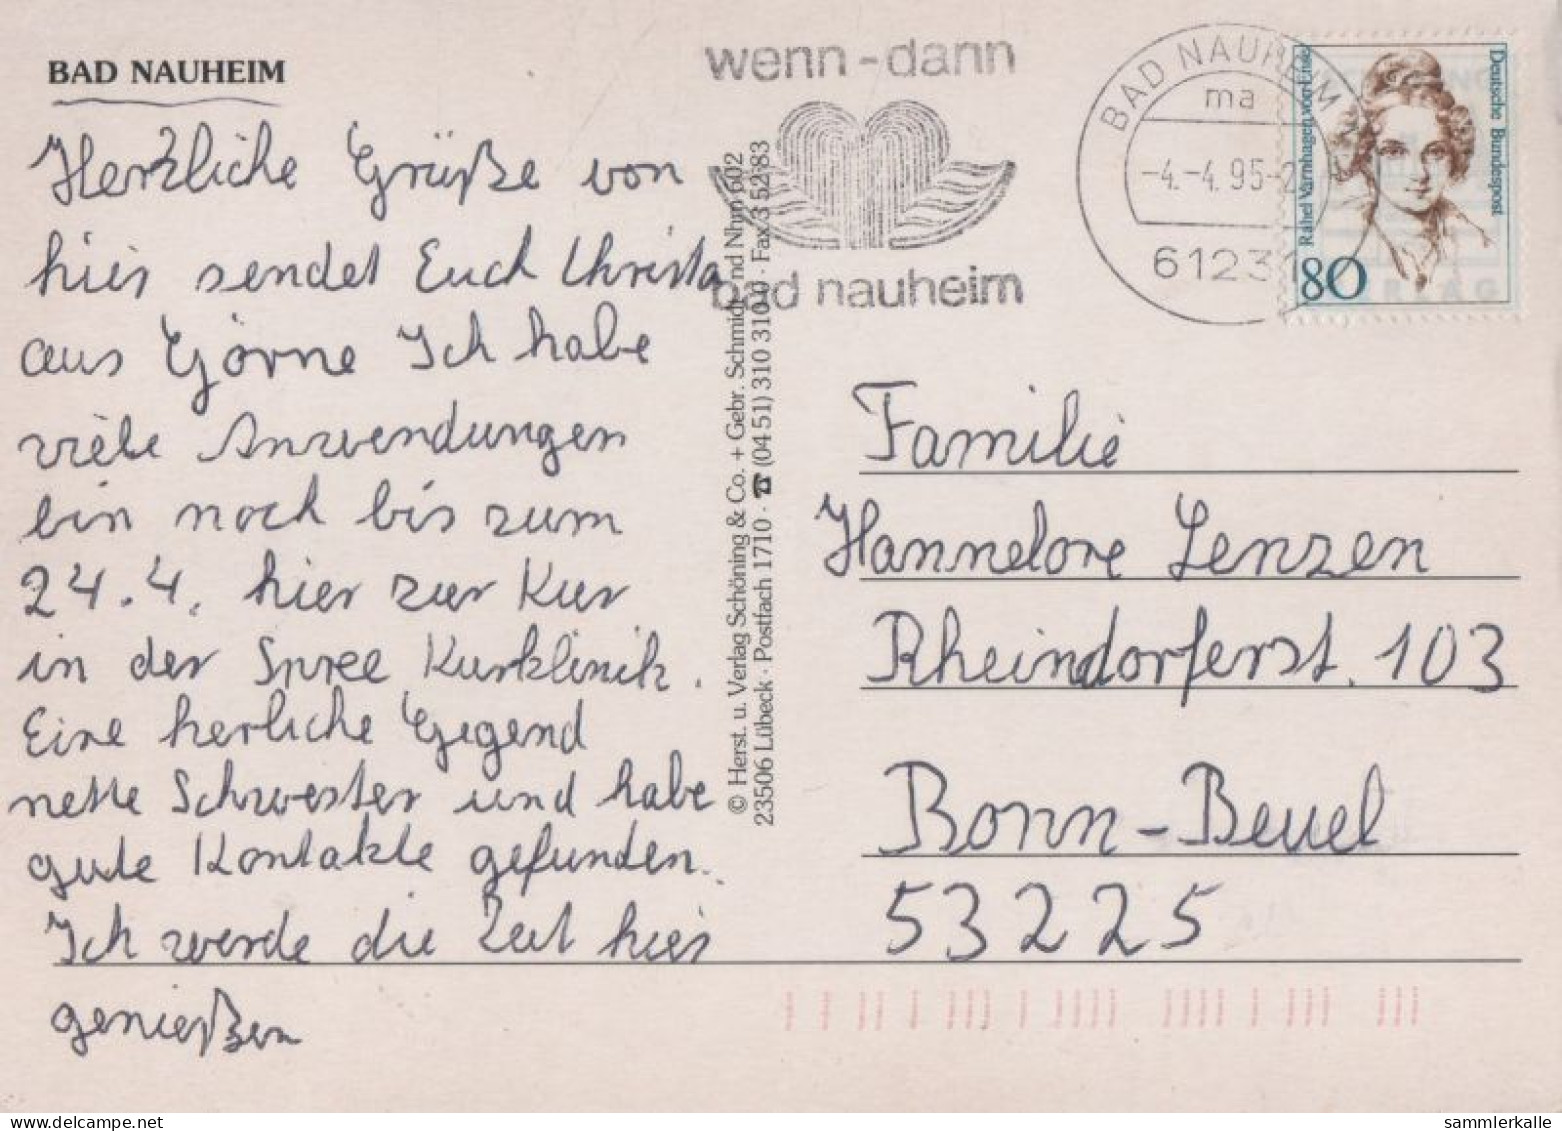 BAD NAUHEIM
Herzliche Grüße von
hier sendet Euch Christa
aus Görne Ich habe
viele Anwendungen
bin noch bis zum
24.4. hier zur Kur
in der Spree Kurklinik.
Eine herliche Gegend
nette Schwester und habe
gute Kontakte gefunden.
Ich werde die Zeit hier
genießen
wenn-dann
bad nauheim
BAD NAUHEIM
ma
-4.-4.95-2
61231
Deutsche Bundespost
Rahel Varnhagen von Ense
80
© Herst. u. Verlag Schöning & Co. + Gebr. Schmidt
23506 Lübeck · Postfach 1710 · ☎ (04 51) 310 310 · Fax 3 52 83
Nhm 602
Familie
Hannelore Lenzen
Rheindorferst. 103
Bonn-Beuel
53225
sammlerkalle